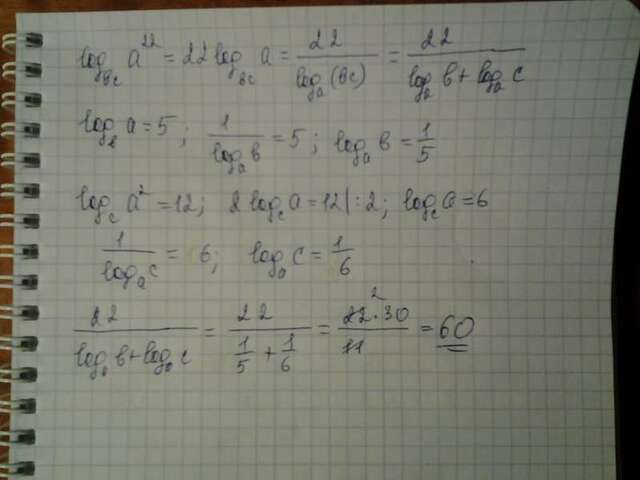 log_{вс} a^{22} = 22 log_{вс} a = \frac{22}{log_a (вс)} = \frac{22}{log_a в + log_a с}
log_в a = 5; \frac{1}{log_a в} = 5; log_a в = \frac{1}{5}
log_с a^2 = 12; 2 log_с a = 12 | : 2; log_с a = 6
\frac{1}{log_a с} = 6; log_a с = \frac{1}{6}
\frac{22}{log_a в + log_a с} = \frac{22}{\frac{1}{5} + \frac{1}{6}} = \frac{\cancel{22}^2 · 30}{\cancel{11}} = 60